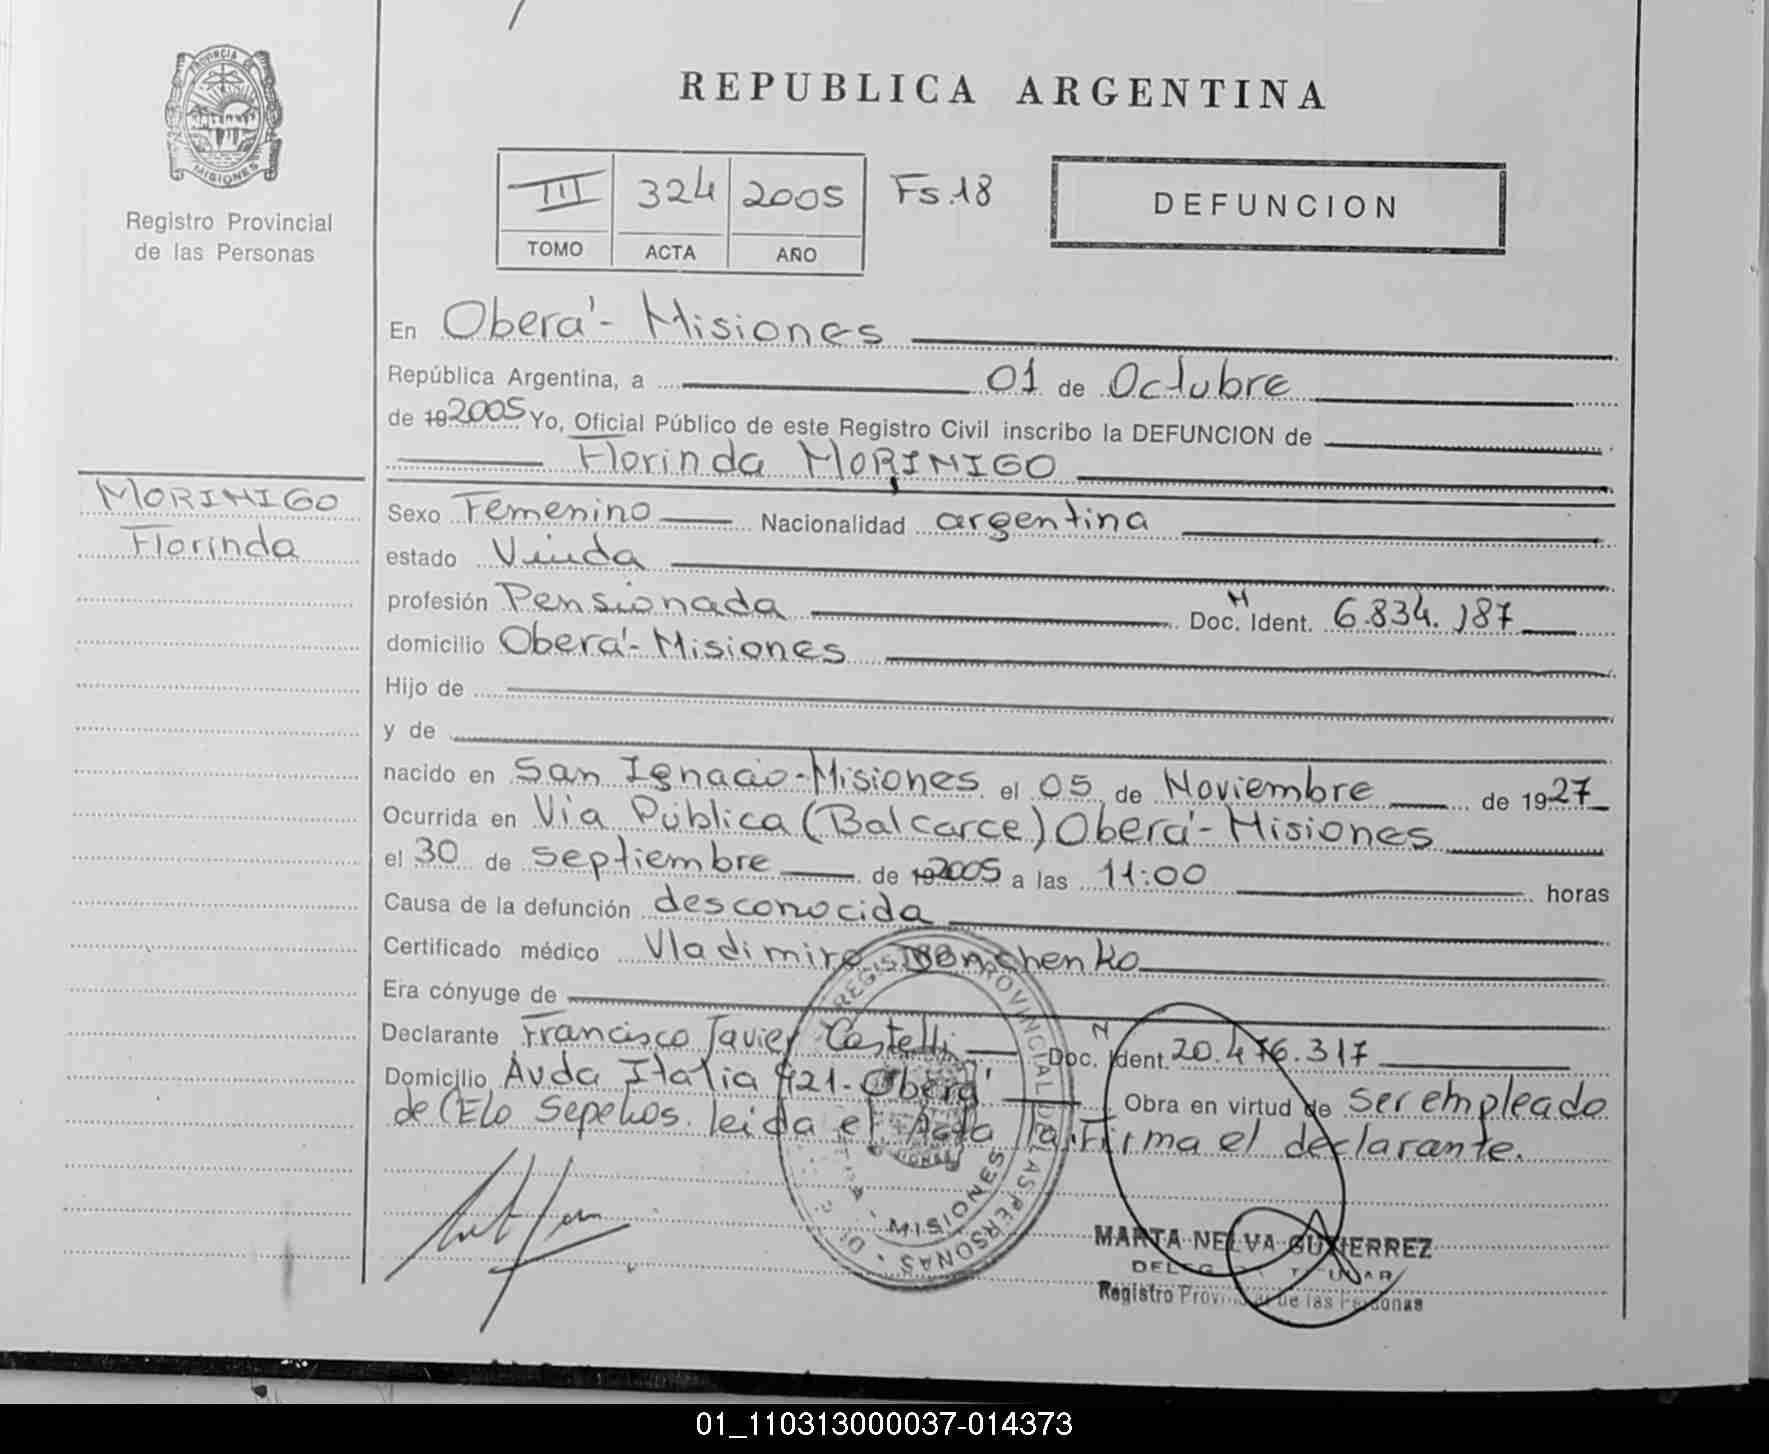 PROVINCIA DE
MISIONES
Registro Provincial
de las Personas
REPUBLICA ARGENTINA
III 324 2005 Fs.18
TOMO ACTA AÑO
DEFUNCION
En Oberá - Misiones
República Argentina, a 01 de Octubre
de 19 2005 Yo, Oficial Público de este Registro Civil inscribo la DEFUNCION de
Florinda MORINIGO
MORINIGO
Florinda
Sexo Femenino Nacionalidad argentina
estado Viuda
profesión Pensionada Doc. N Ident. 6.834.187
domicilio Oberá - Misiones
Hijo de
y de
nacido en San Ignacio - Misiones el 05 de Noviembre de 1927
Ocurrida en Via Pública (Balcarce) Oberá - Misiones
el 30 de Septiembre de 19 2005 a las 11:00 horas
Causa de la defunción desconocida
Certificado médico Vladimiro
Era cónyuge de
Declarante Francisco Javier Castelli Doc. N Ident. 20.476.317
Domicilio Avda Italia 421 - Oberá Obra en virtud de ser empleado
de CELO Sepelios. leida el Acta la Firma el declarante.
REGISTRO PROVINCIAL DE LAS PERSONAS
MISIONES
MARTA NELVA GUTIERREZ
Registro Provincial de las Personas
01_110313000037-014373